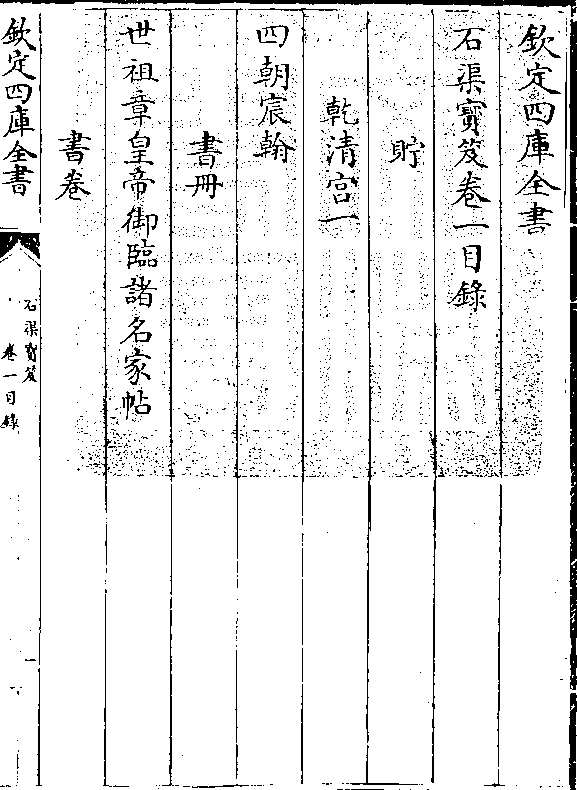 欽定四庫全書
石渠寳笈卷一目錄
貯
乾清宫一
四朝宸翰
書冊
世祖章皇帝御臨諸名家帖
書卷
欽定四庫全書
石渠寳笈
卷一目錄
一